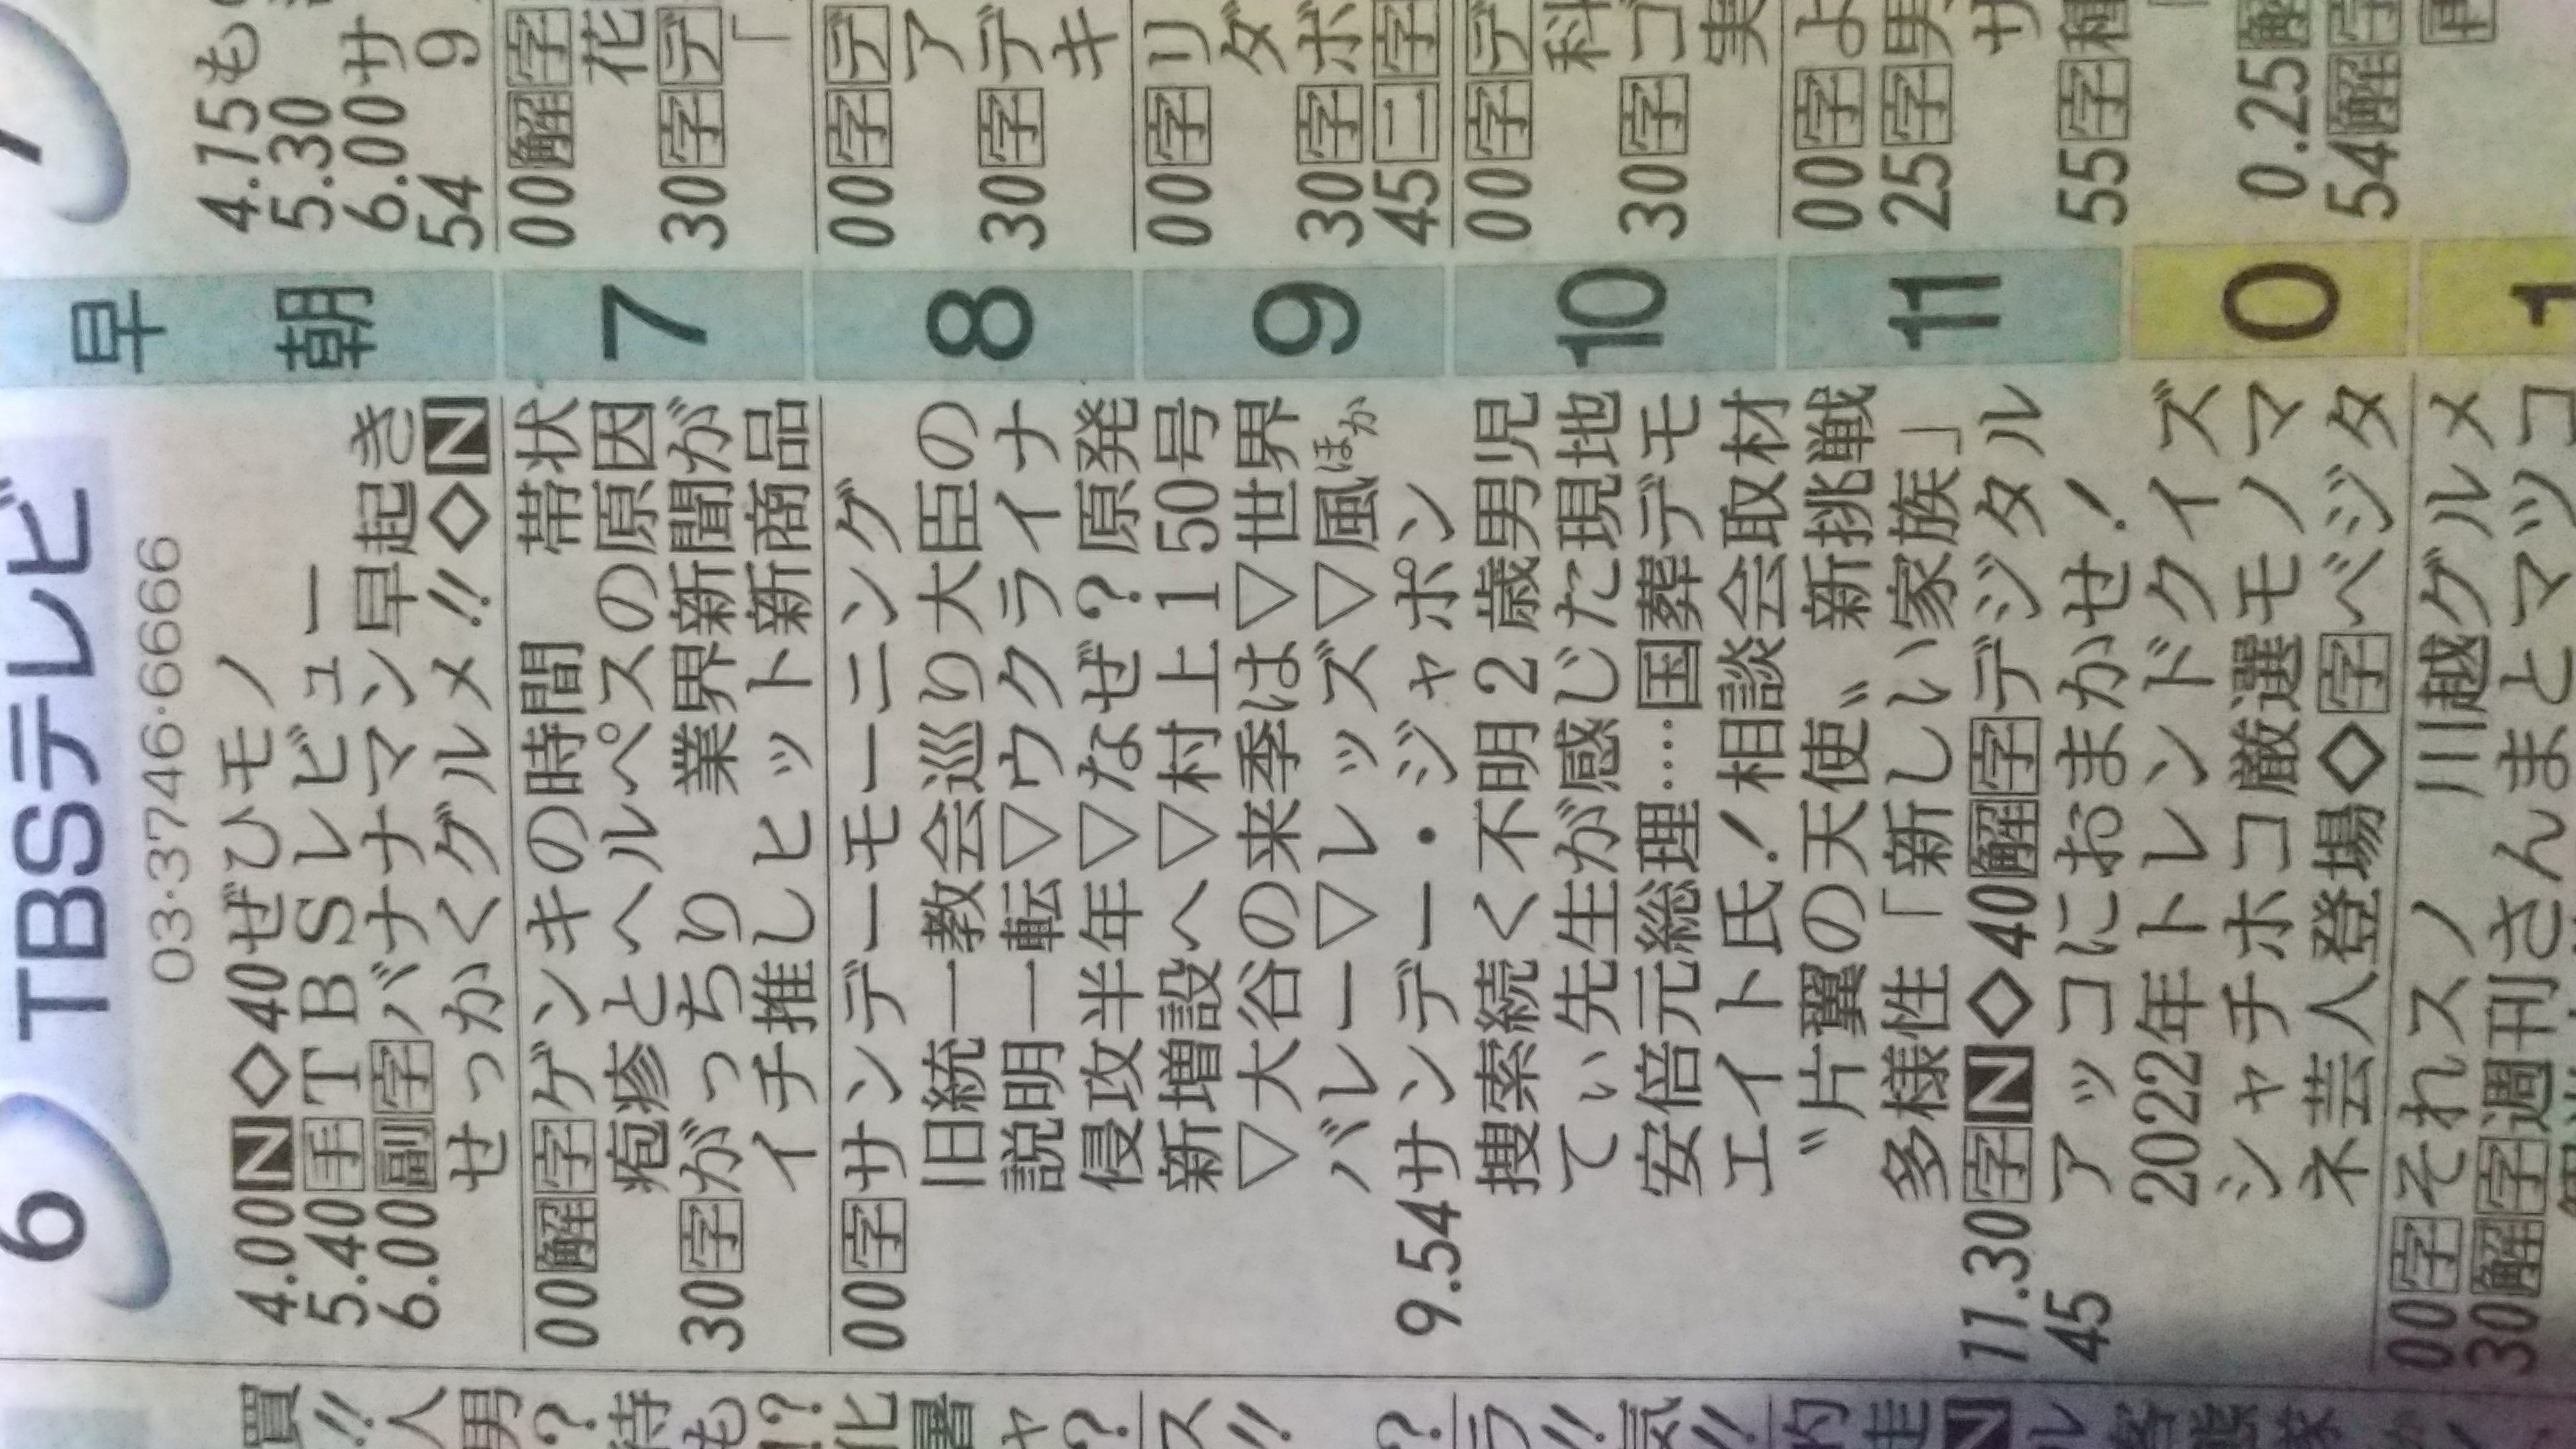 6 TBSテレビ
03·3746·6666
4.00N◇40ぜひモノ
5.40手TBSレビュー
6.00副字バナナマン早起き
せっかくグルメ!!◇N
00解字ゲンキの時間 帯状
疱疹とヘルペスの原因
30字がっちり 業界新聞が
イチ推しヒット新商品
00字サンデーモーニング
旧統一教会巡り大臣の
説明一転▽ウクライナ
侵攻半年▽なぜ?原発
新増設へ▽村上150号
▽大谷の来季は▽世界
バレー▽レッズ▽風ほか
9.54サンデー・ジャポン
捜索続く不明2歳男児
てぃ先生が感じた現地
安倍元総理……国葬デモ
エイト氏!相談会取材
〝片翼の天使〟新挑戦
多様性「新しい家族」
11.30字N◇40解字デジタル
45 アッコにおまかせ!
2022年トレンドクイズ
シャチホコ厳選モノマ
ネ芸人登場◇字べジタ
00字それスノ 川越グルメ
30解字週刊さんまとマツコ
早
朝
7
8
9
10
11
0
1
4.15も
5.30
6.00サ
54 9
00解字
花
30字デ
「
00字デ
ア
30字デ
キ
00字リ
ダ
30字ボ
45二字
00字デ
科
30字ゴ
実
00字よ
25字男
サ
55字種
0.25解
54解字
再
買
!!
人
男
?
待
も
!?
化
署
ャ
?
ス
!!
?
ラ
!!
気
!!
的
N
ル